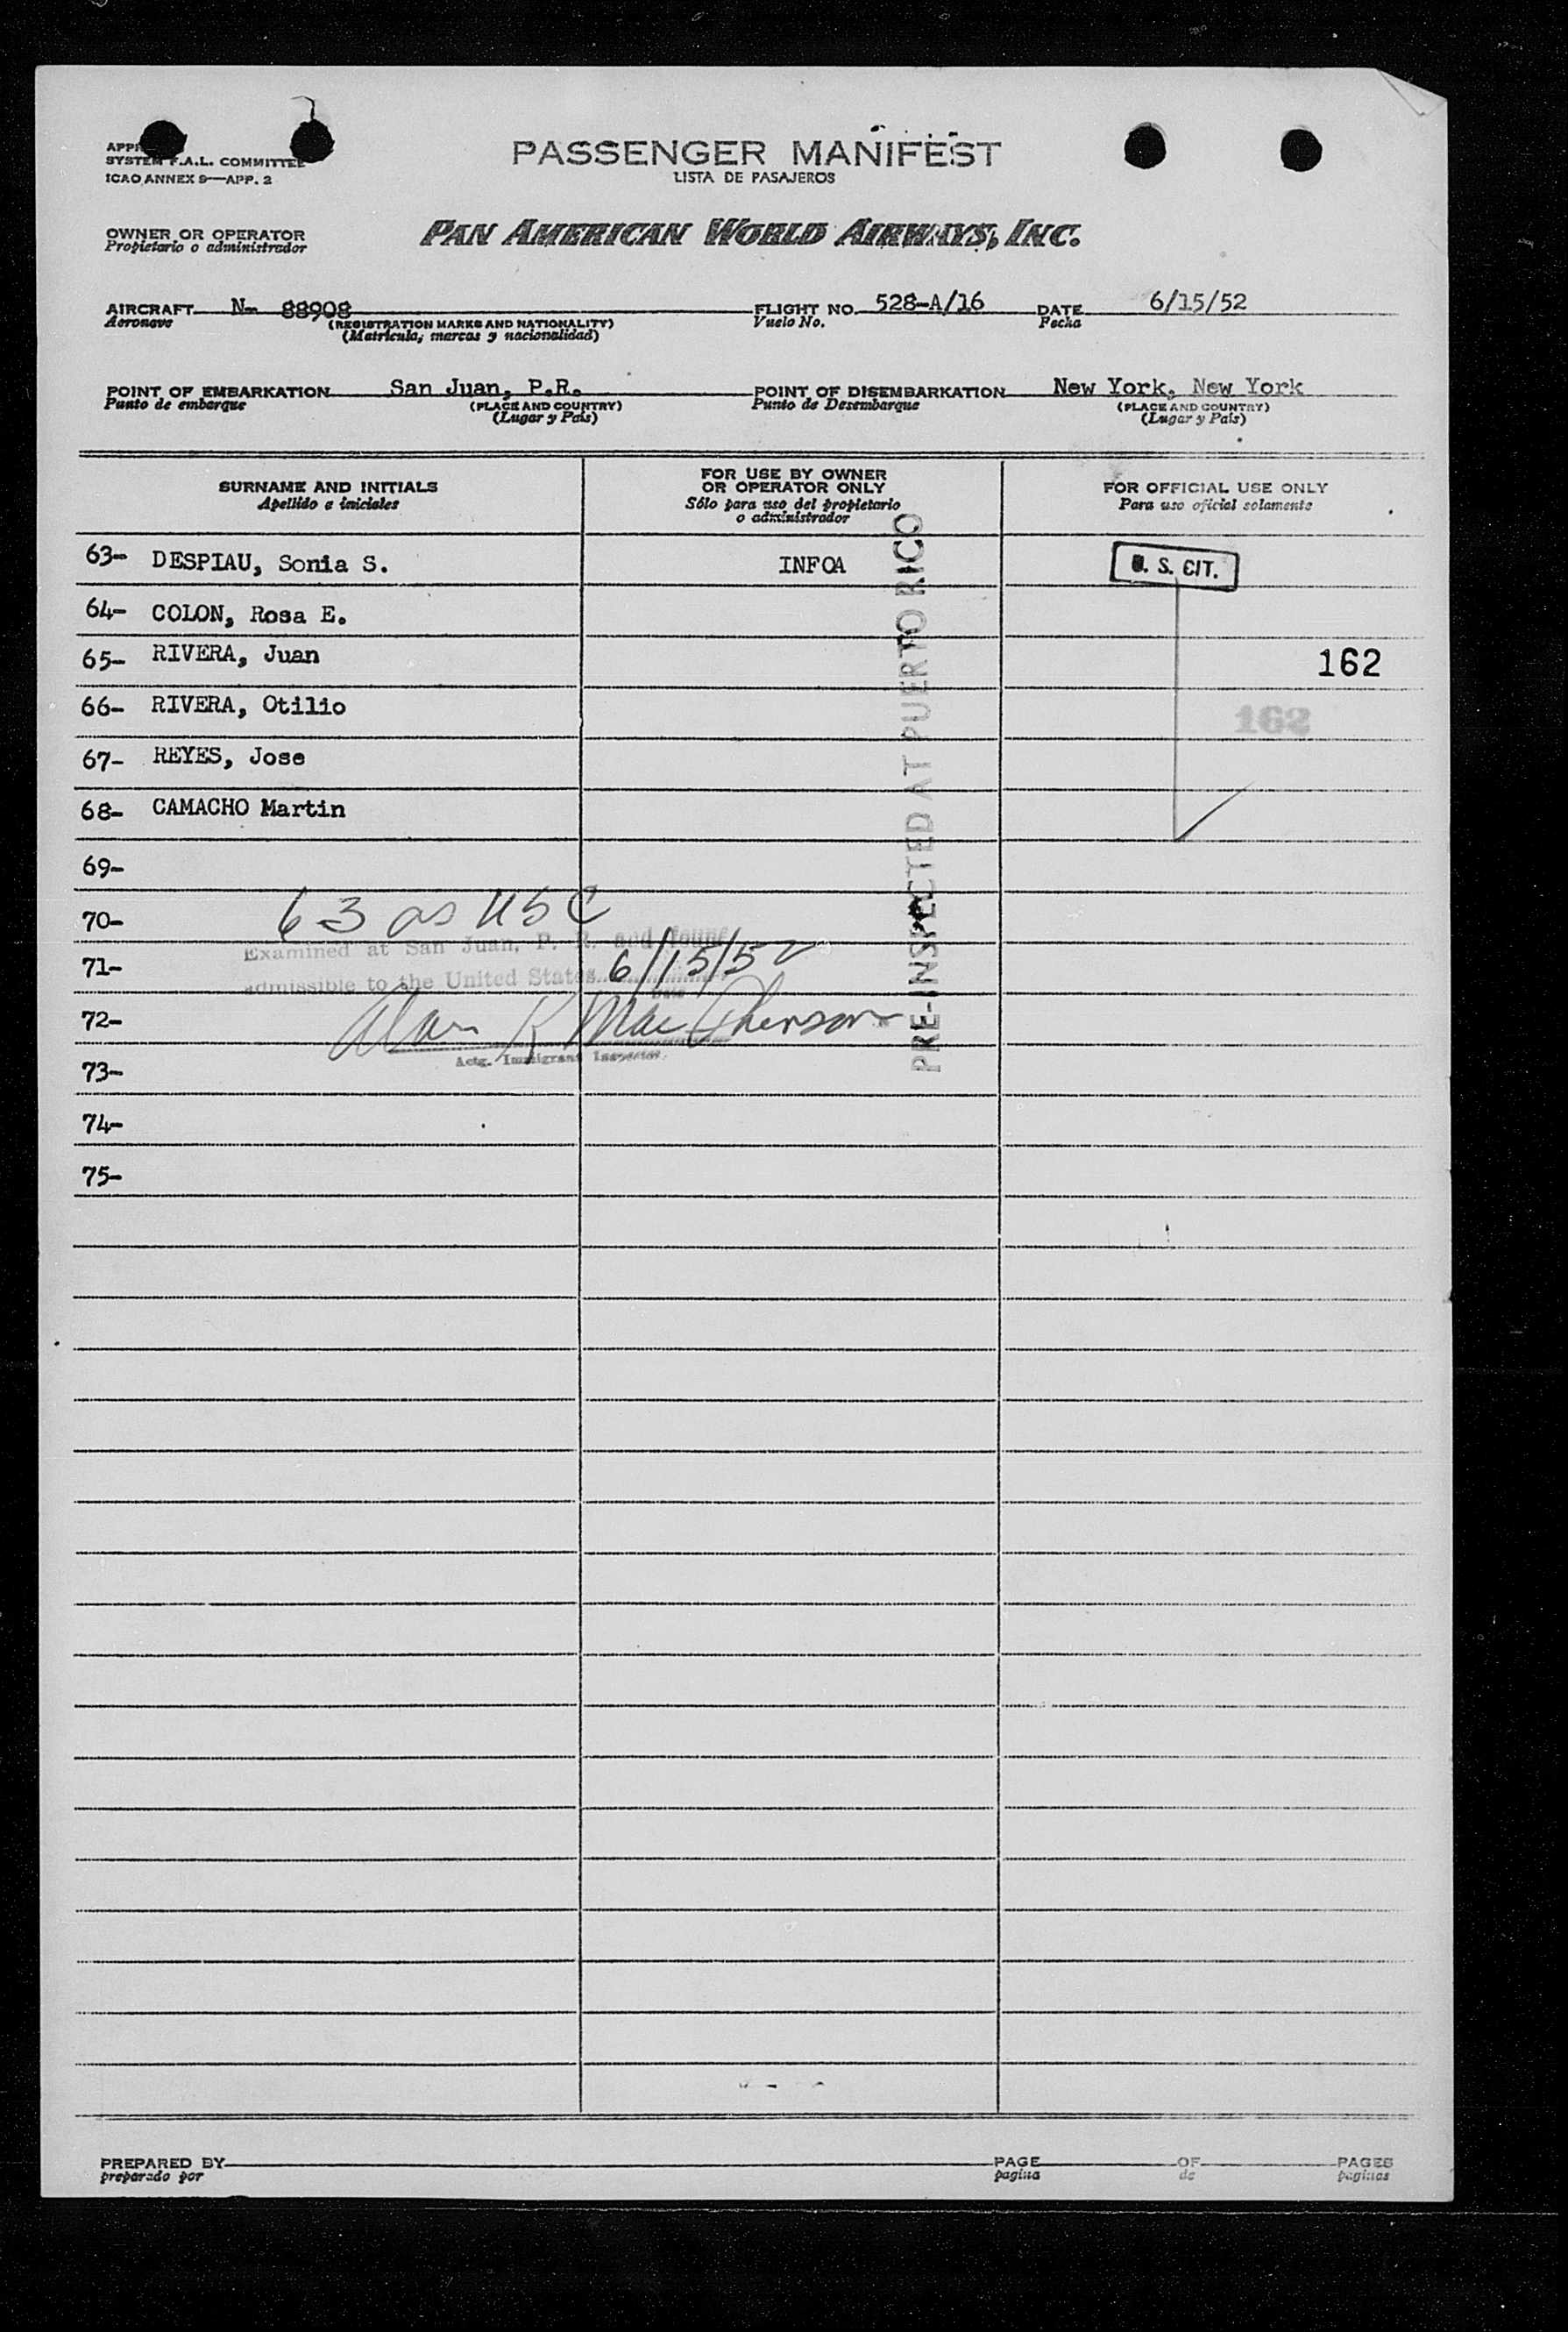 SYSTEM F.A.L. COMMITTEE
ICAO ANNEX 9—APP. 2
PASSENGER MANIFEST
LISTA DE PASAJEROS
OWNER OR OPERATOR
Propietario o administrador
PAN AMERICAN WORLD AIRWAYS, INC.
AIRCRAFT N- 88908 FLIGHT NO. 528-A/16 DATE 6/15/52
Aeronave (REGISTRATION MARKS AND NATIONALITY) Vuelo No. Fecha
(Matrícula, marcas y nacionalidad)
POINT OF EMBARKATION San Juan, P.R. POINT OF DISEMBARKATION New York, New York
Punto de embarque (PLACE AND COUNTRY) Punto de Desembarque (PLACE AND COUNTRY)
(Lugar y País) (Lugar y País)
SURNAME AND INITIALS
Apellido e iniciales
FOR USE BY OWNER
OR OPERATOR ONLY
Sólo para uso del propietario
o administrador
FOR OFFICIAL USE ONLY
Para uso oficial solamente
63- DESPIAU, Sonia S. INFOA U. S. CIT.
64- COLON, Rosa E.
65- RIVERA, Juan 162
66- RIVERA, Otilio 162
67- REYES, Jose
68- CAMACHO Martin
69-
70- 63 as USC
Examined at San Juan, P. R. and found
71- 6/15/52
admissible to the United States
Date
72- Alan K MacPherson
Actg. Immigrant Inspector
73-
74-
75-
PRE-INSPECTED AT PUERTO RICO
PREPARED BY PAGE OF PAGES
preparado por pagina de paginas